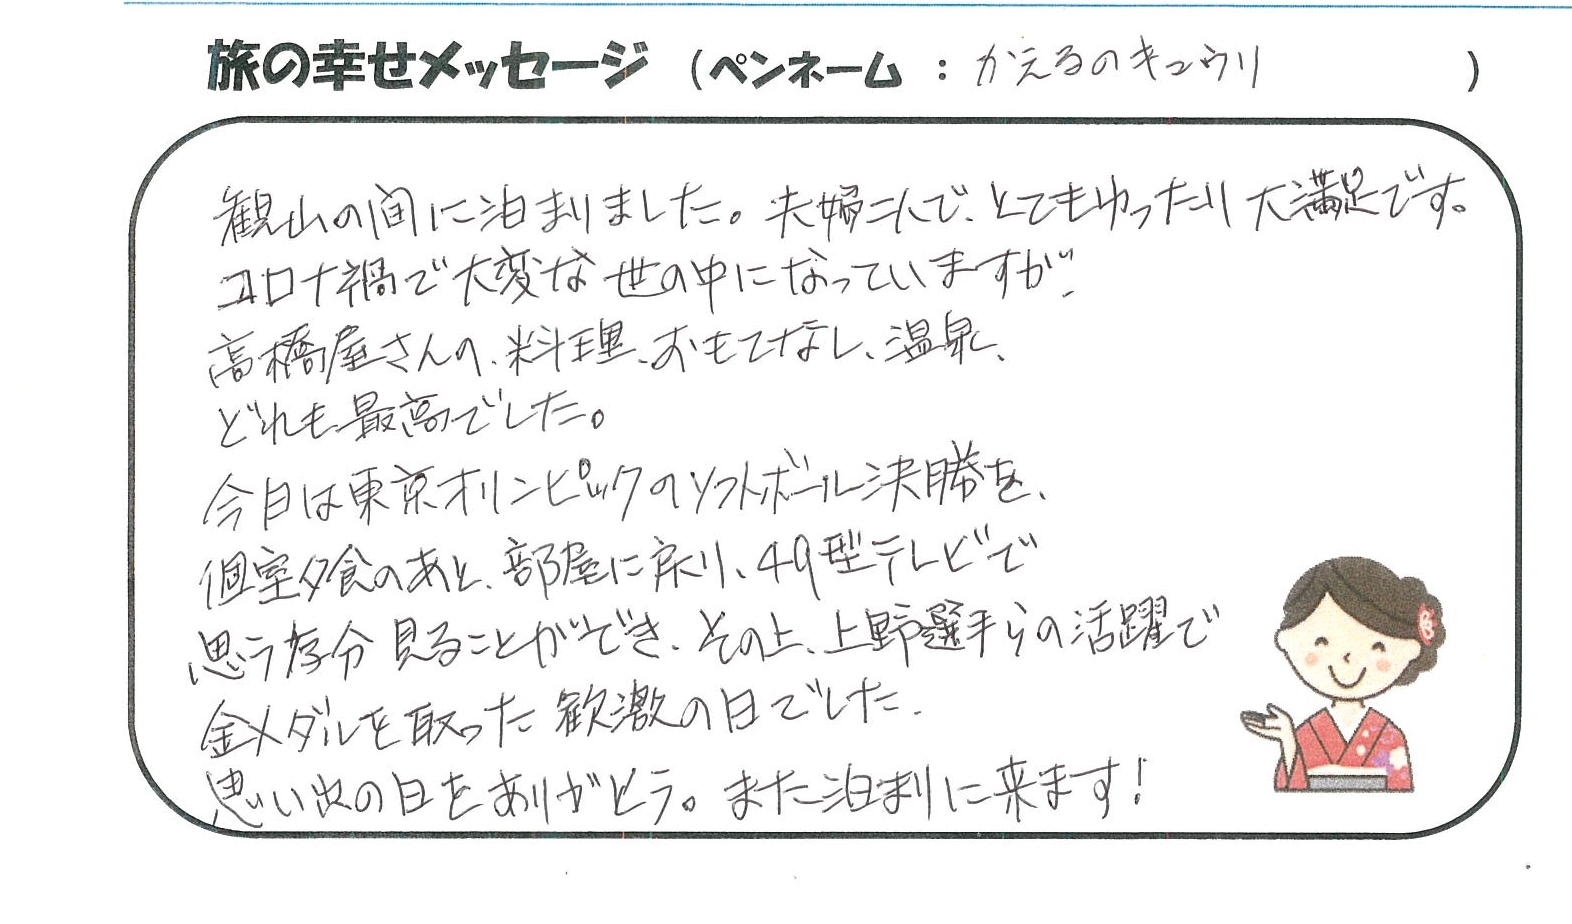 旅の幸せメッセージ (ペンネーム : かえるのキュウリ )
観山の間に泊まりました。夫婦二人で、とてもゆったり大満足です。
コロナ禍で大変な世の中になっていますが、
高橋屋さんの、料理、おもてなし、温泉、
どれも最高でした。
今日は東京オリンピックのソフトボール決勝を、
個室夕食のあと、部屋に戻り、49型テレビで
思う存分見ることができ、その上、上野選手らの活躍で
金メダルを取った歓激の日でした。
思い出の日をありがとう。また泊まりに来ます!